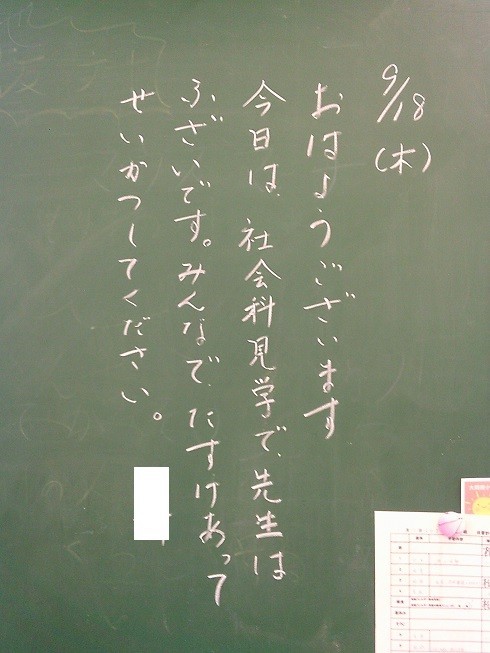 9/18(木)
おはようございます
今日は、社会科見学で、先生は
ふざいです。みんなで、たすけあって
せいかつしてください。